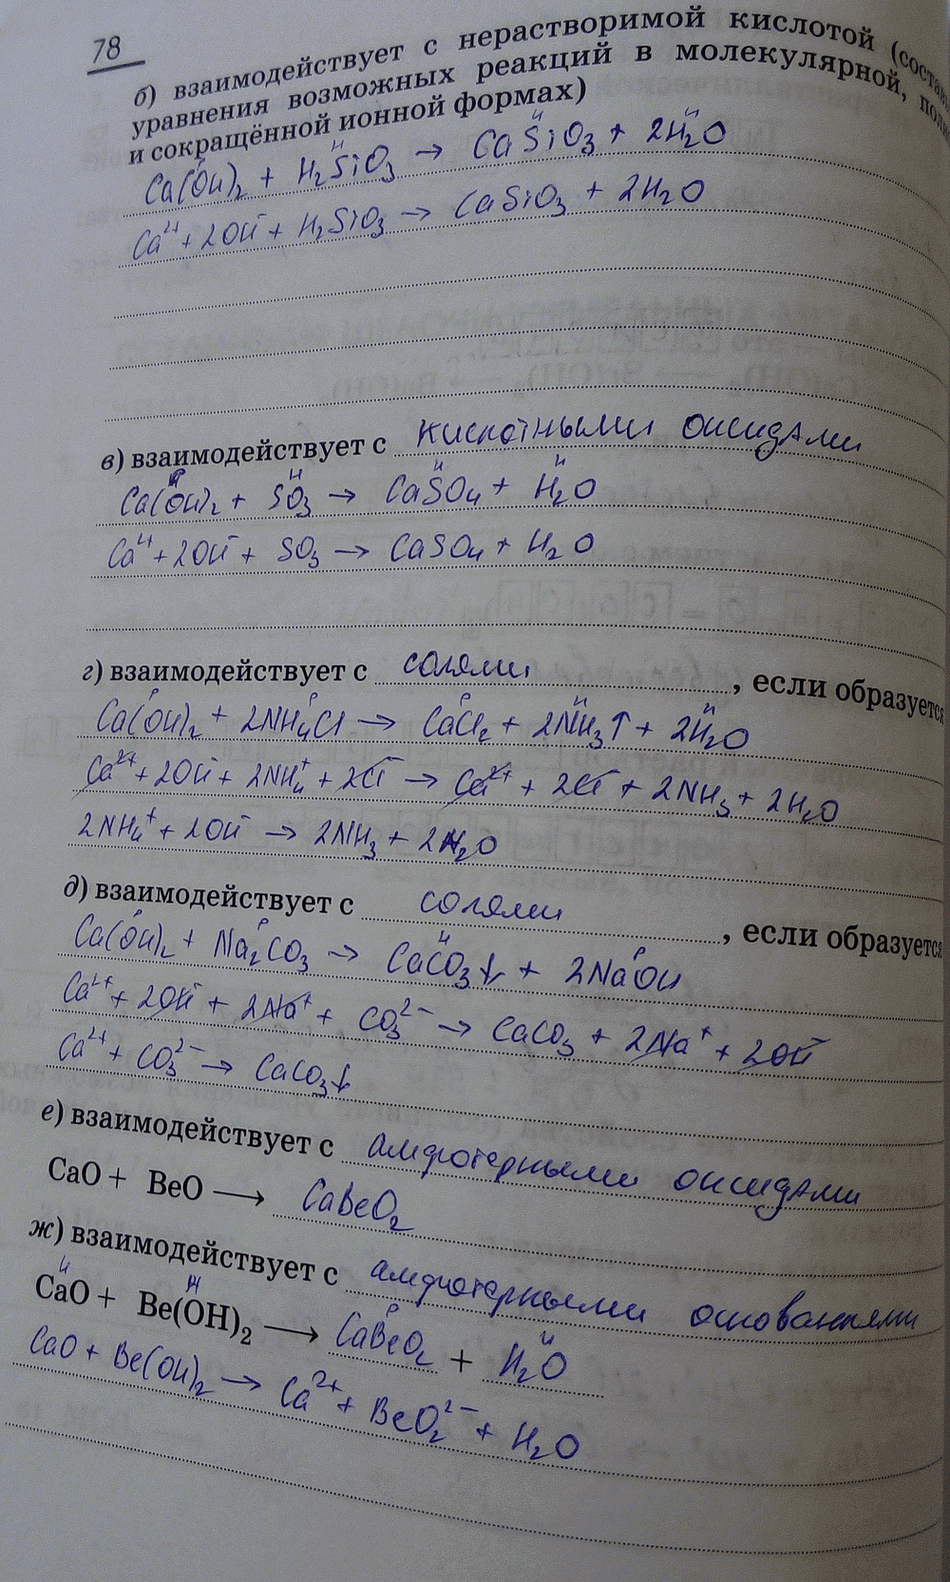 78
б) взаимодействует с нерастворимой кислотой (состав
уравнения возможных реакций в молекулярной, пол
и сокращённой ионной формах)
Ca(OH)₂ + H₂SiO₃ → CaSiO₃ + 2H₂O
Ca²⁺ + 2OH⁻ + H₂SiO₃ → CaSiO₃ + 2H₂O
в) взаимодействует с кислотными оксидами
Ca(OH)₂ + SO₃ → CaSO₄ + H₂O
Ca²⁺ + 2OH⁻ + SO₃ → CaSO₄ + H₂O
г) взаимодействует с солями, если образуется
Ca(OH)₂ + 2NH₄Cl → CaCl₂ + 2NH₃↑ + 2H₂O
Ca²⁺ + 2OH⁻ + 2NH₄⁺ + 2Cl⁻ → Ca²⁺ + 2Cl⁻ + 2NH₃ + 2H₂O
2NH₄⁺ + 2OH⁻ → 2NH₃ + 2H₂O
д) взаимодействует с солями, если образуется
Ca(OH)₂ + Na₂CO₃ → CaCO₃↓ + 2NaOH
Ca²⁺ + 2OH⁻ + 2Na⁺ + CO₃²⁻ → CaCO₃ + 2Na⁺ + 2OH⁻
Ca²⁺ + CO₃²⁻ → CaCO₃↓
е) взаимодействует с амфотерными оксидами
CaO + BeO ⟶ CaBeO₂
ж) взаимодействует с амфотерными основаниями
CaO + Be(OH)₂ ⟶ CaBeO₂ + H₂O
CaO + Be(OH)₂ → Ca²⁺ + BeO₂²⁻ + H₂O